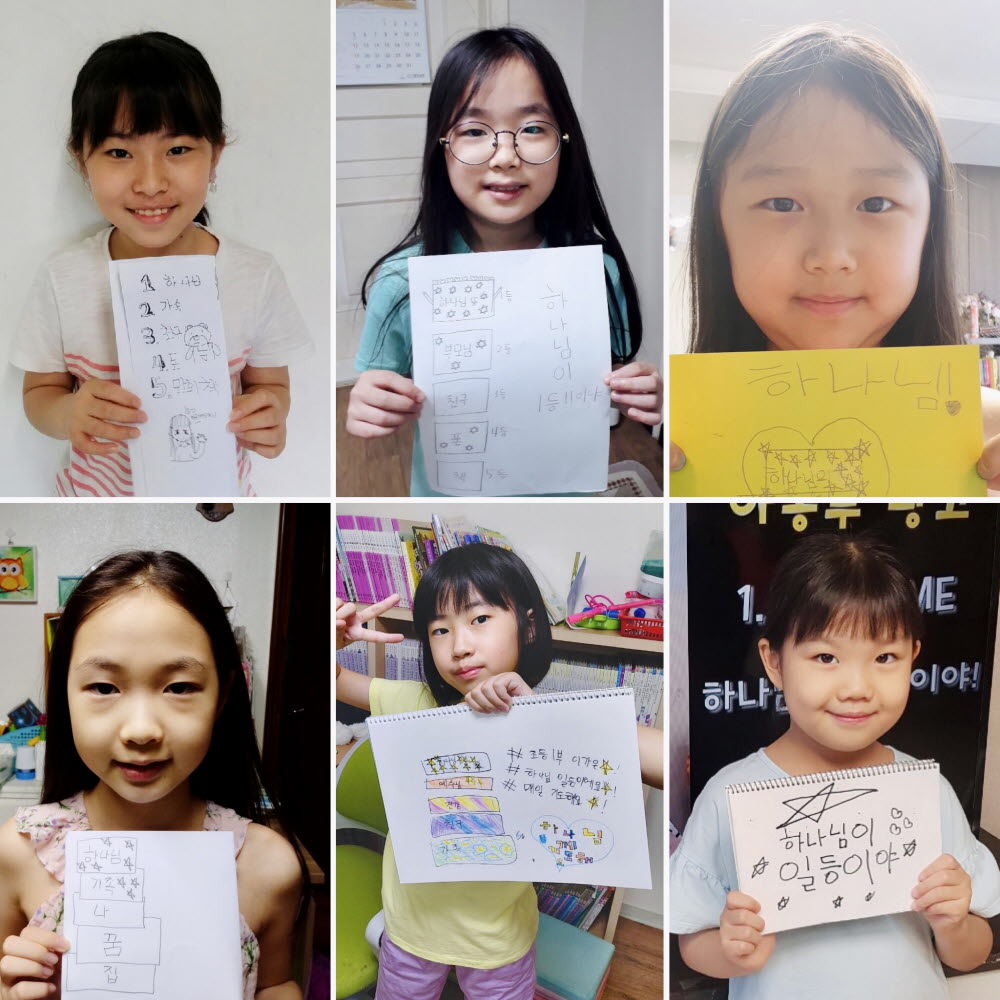 1 하나님
2 가족
3. 친구
4. 돈
5.
하나님
1등
부모님
2등
친구
3등
꿈
4등
책
5등
하나님이
1등!!이야
하나님!
하나님의
하나님
가족
나
꿈
집
하나님
예수님
친구
가족
# 초등1부 이가은
# 하나님 일등이에요!
# 매일 기도해요!
하나님
1.
ME
하나님
이야!
하나님이
일등이야